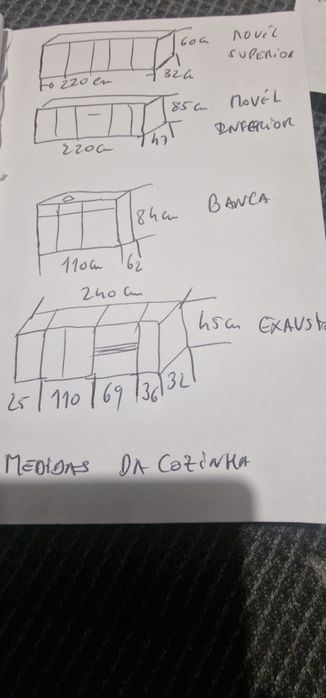 60cm MOVÉL
SUPERIOR
220cm 32cm
85cm MOVÉL
INFERIOR
220cm 47
BANCA
84cm
110cm 62
240cm
45cm
25 110 69 36 32
MEDIDAS DA COZINHA